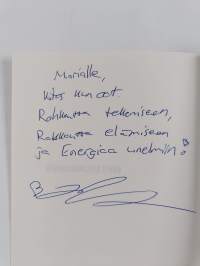 Marialle,
Kiitos kun oot.
Rohkeutta tekemiseen,
Rakkautta elämiseen
ja Energiaa unelmiin!